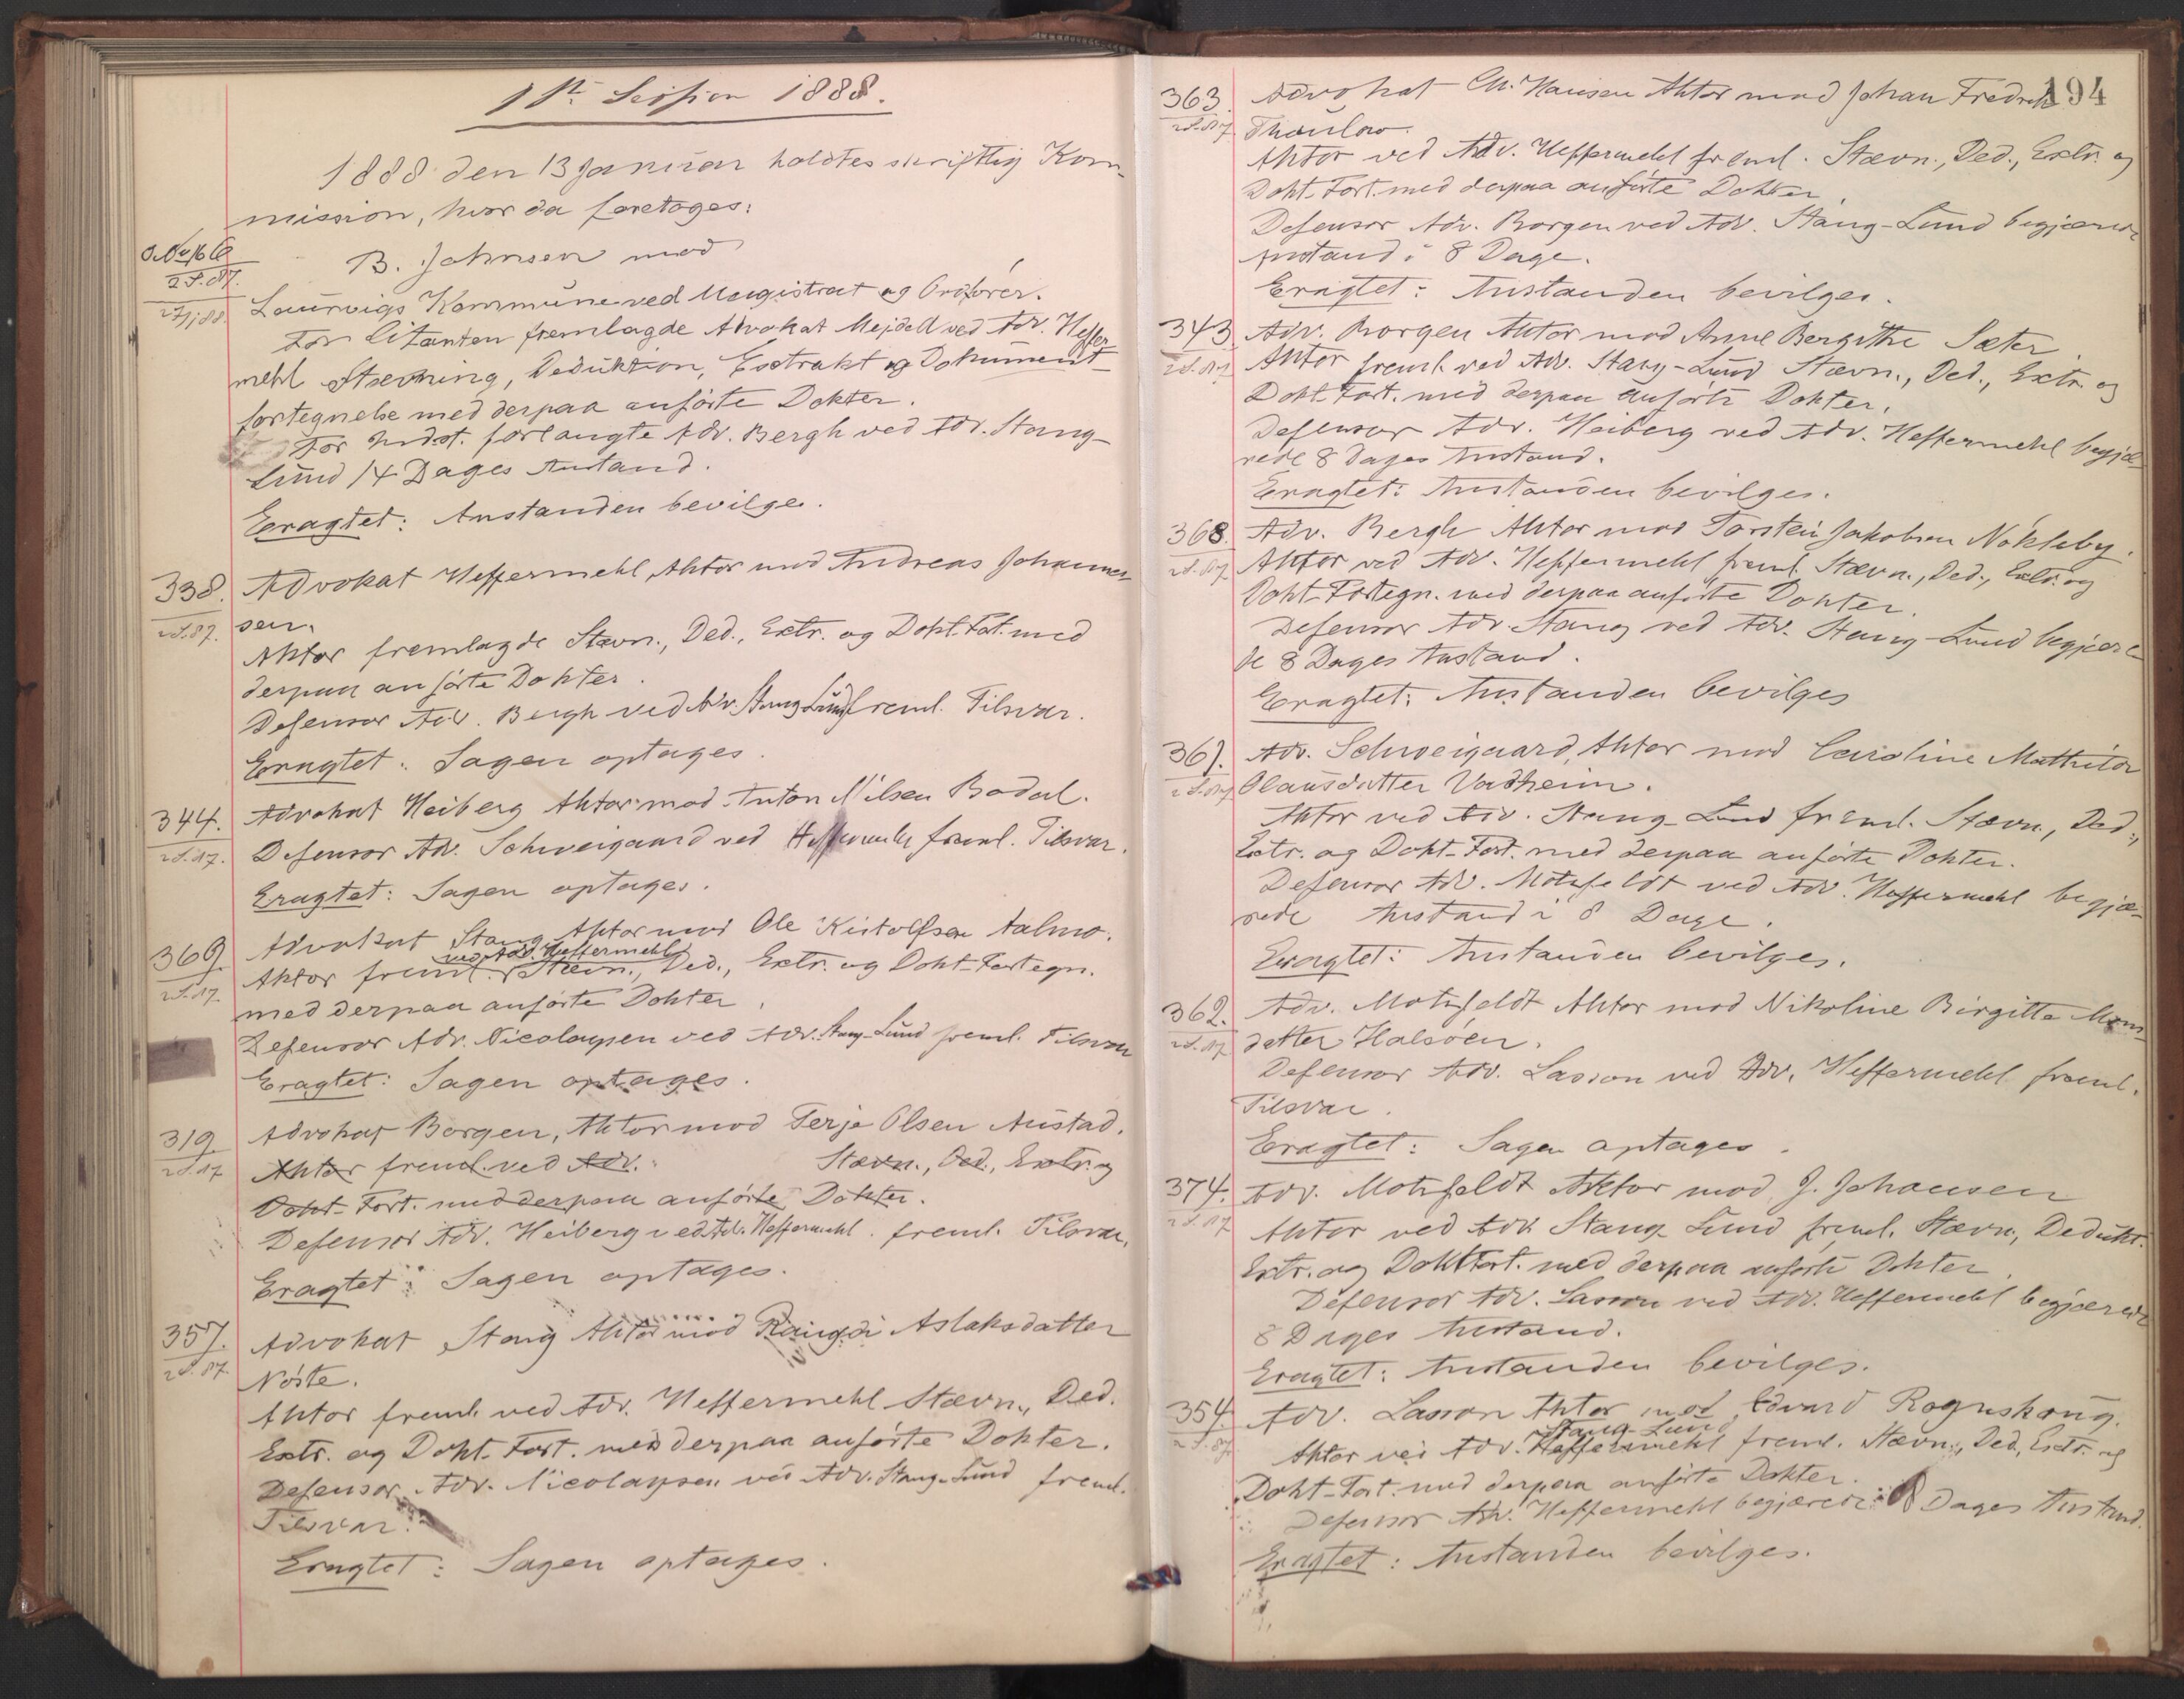 1ste Session 1888.
1888 den 13 Januar holdtes skriftlig Kom-
mission, hvor da foretoges:
B. Johnsen mod
2 S. 87.
Laurvigs Kommune ved Magistrat og Ordfører.
For Citanten fremlagde Advokat Mejdell ved Adv. Heffer-
mehl Stævning, Deduktion, Extrakt og Dokument-
fortegnelse med derpaa anførte Dokter.
For Indst. forlangte Adv. Bergh ved Adv. Stang-
Lund 14 Dages Anstand.
Eragtet: Anstanden bevilges.
338. Advokat Heffermehl, Aktor mod Andreas Johannes-
2 S. 87. sen.
Aktor fremlagde Stævn., Ded., Extr. og Dokt. Fort. med
derpaa anførte Dokter.
Defensor Adv. Bergh ved Adv. Stang Lund freml. Tilsvar.
Eragtet: Sagen optages.
344. Advokat Heiberg Aktor mod Anton Nilsen Bodal.
2 S. 87. Defensor Adv. Schweigaard ved Heffermehl freml. Tilsvar.
Eragtet: Sagen optages.
369. Advokat Stang Aktor mod Ole Kistolfsen Aalmo.
ved Adv. Heffermehl
2 S. 87. Aktor freml. Stævn., Ded., Extr. og Dokt-Fortegn.
med derpaa anførte Dokter.
Defensor Adv. Nicolaysen ved Adv. Stang-Lund freml. Tilsvar
Eragtet: Sagen optages.
319. Advokat Borgen, Aktor mod Terje Olsen Austad.
2 S. 87. Aktor freml. ved Adv. Stævn., Ded., Extr. og
Dokt-Fort. med derpaa anførte Dokter.
Defensor Adv. Heiberg ved Adv. Heffermehl freml. Tilsvar.
Eragtet: Sagen optages.
357. Advokat Stang Aktor mod Aslaksdatter
2 S. 87. Nøste.
Aktor freml. ved Adv. Heffermehl Stævn., Ded.
Extr. og Dokt-Fort. med derpaa anførte Dokter.
Defensor Adv. Nicolaysen ved Adv. Stang-Lund freml.
Tilsvar.
Eragtet: Sagen optages.
194
363. Advokat Ch. Hansen Aktor mod Johan Fredrik
2 S. 87. Thaulow.
Aktor ved Adv. Heffermehl freml. Stævn., Ded., Extr. og
Dokt-Fort. med derpaa anførte Dokter
Defensor Adv. Borgen ved Adv. Stang-Lund begjærede
Anstand i 8 Dage.
Eragtet: Anstanden bevilges.
343. Adv. Borgen Aktor mod Anne Bergitte Sæter
2 S. 87. Aktor freml. ved Adv. Stang-Lund Stævn., Ded., Extr. og
Dokt-Fort. med derpaa anførte Dokter.
Defensor Adv. Heiberg ved Adv. Heffermehl begjæ-
rede 8 Dages Anstand.
Eragtet: Anstanden bevilges.
368. Adv. Bergh Aktor mod Torstein Jakobsen Nøkleby.
2 S. 87. Aktor ved Adv. Heffermehl freml. Stævn., Ded., Extr. og
Dokt-Fortegn. med derpaa anførte Dokter.
Defensor Adv. Stang ved Adv. Stang-Lund begjære-
de 8 Dages Anstand.
Eragtet: Anstanden bevilges
367. Adv. Schweigaard, Aktor mod Caroline Mathilda
2 S. 87. Olausdatter Vadheim.
Aktor ved Adv. Stang-Lund freml. Stævn., Ded.,
Extr. og Dokt-Fort. med derpaa anførte Dokter.
Defensor Adv. Motzfeldt ved Adv. Heffermehl begjæ-
rede Anstand i 8 Dage.
Eragtet: Anstanden bevilges.
362. Adv. Motzfeldt Aktor mod Nikoline Birgitte Mons-
2 S. 87. datter Halsøen.
Defensor Adv. Lasson ved Adv. Heffermehl freml.
Tilsvar.
Eragtet: Sagen optages.
374. Adv. Motzfeldt Aktor mod J. Johansen
2 S. 87. Aktor ved Adv. Stang Lund freml. Stævn., Dedukt.
Extr. og Doktfort. med derpaa anførte Dokter.
Defensor Adv. Lasson ved Adv. Heffermehl begjærede
8 Dages Anstand.
Eragtet: Anstanden bevilges.
354. Adv. Lasson Aktor mod Edvard Rognskaug.
Stang-Lund
2 S. 87. Aktor ved Adv. Heffermehl freml. Stævn., Ded., Extr. og
Dokt-Fort. med derpaa anførte Dokter.
Defensor Adv. Heffermehl begjærede 8 Dages Anstand.
Eragtet: Anstanden bevilges.